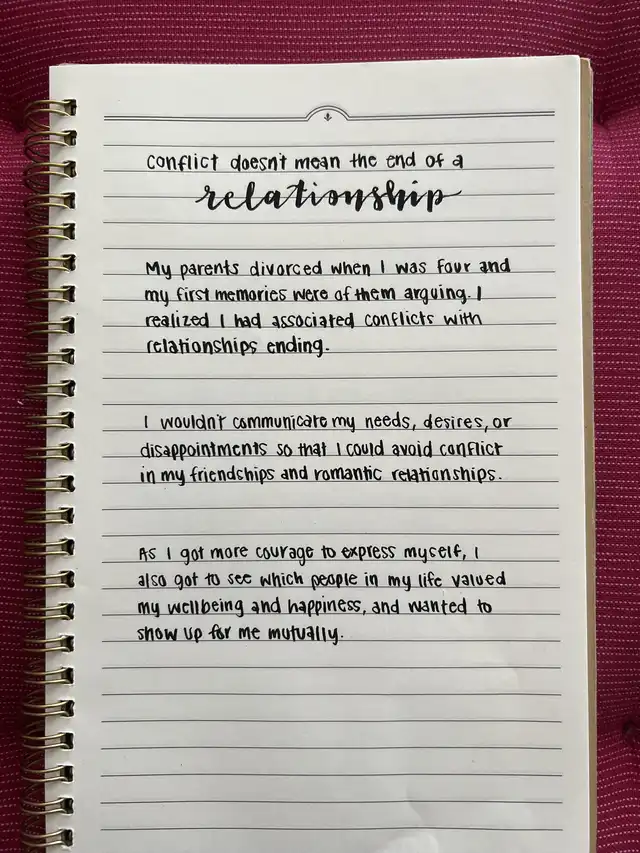 Conflict doesn't mean the end of a
relationship
My parents divorced when I was four and
my first memories were of them arguing. I
realized I had associated conflicts with
relationships ending.
I wouldn't communicate my needs, desires, or
disappointments so that I could avoid conflict
in my friendships and romantic relationships.
As I got more courage to express myself, I
also got to see which people in my life valued
my wellbeing and happiness, and wanted to
show up for me mutually.